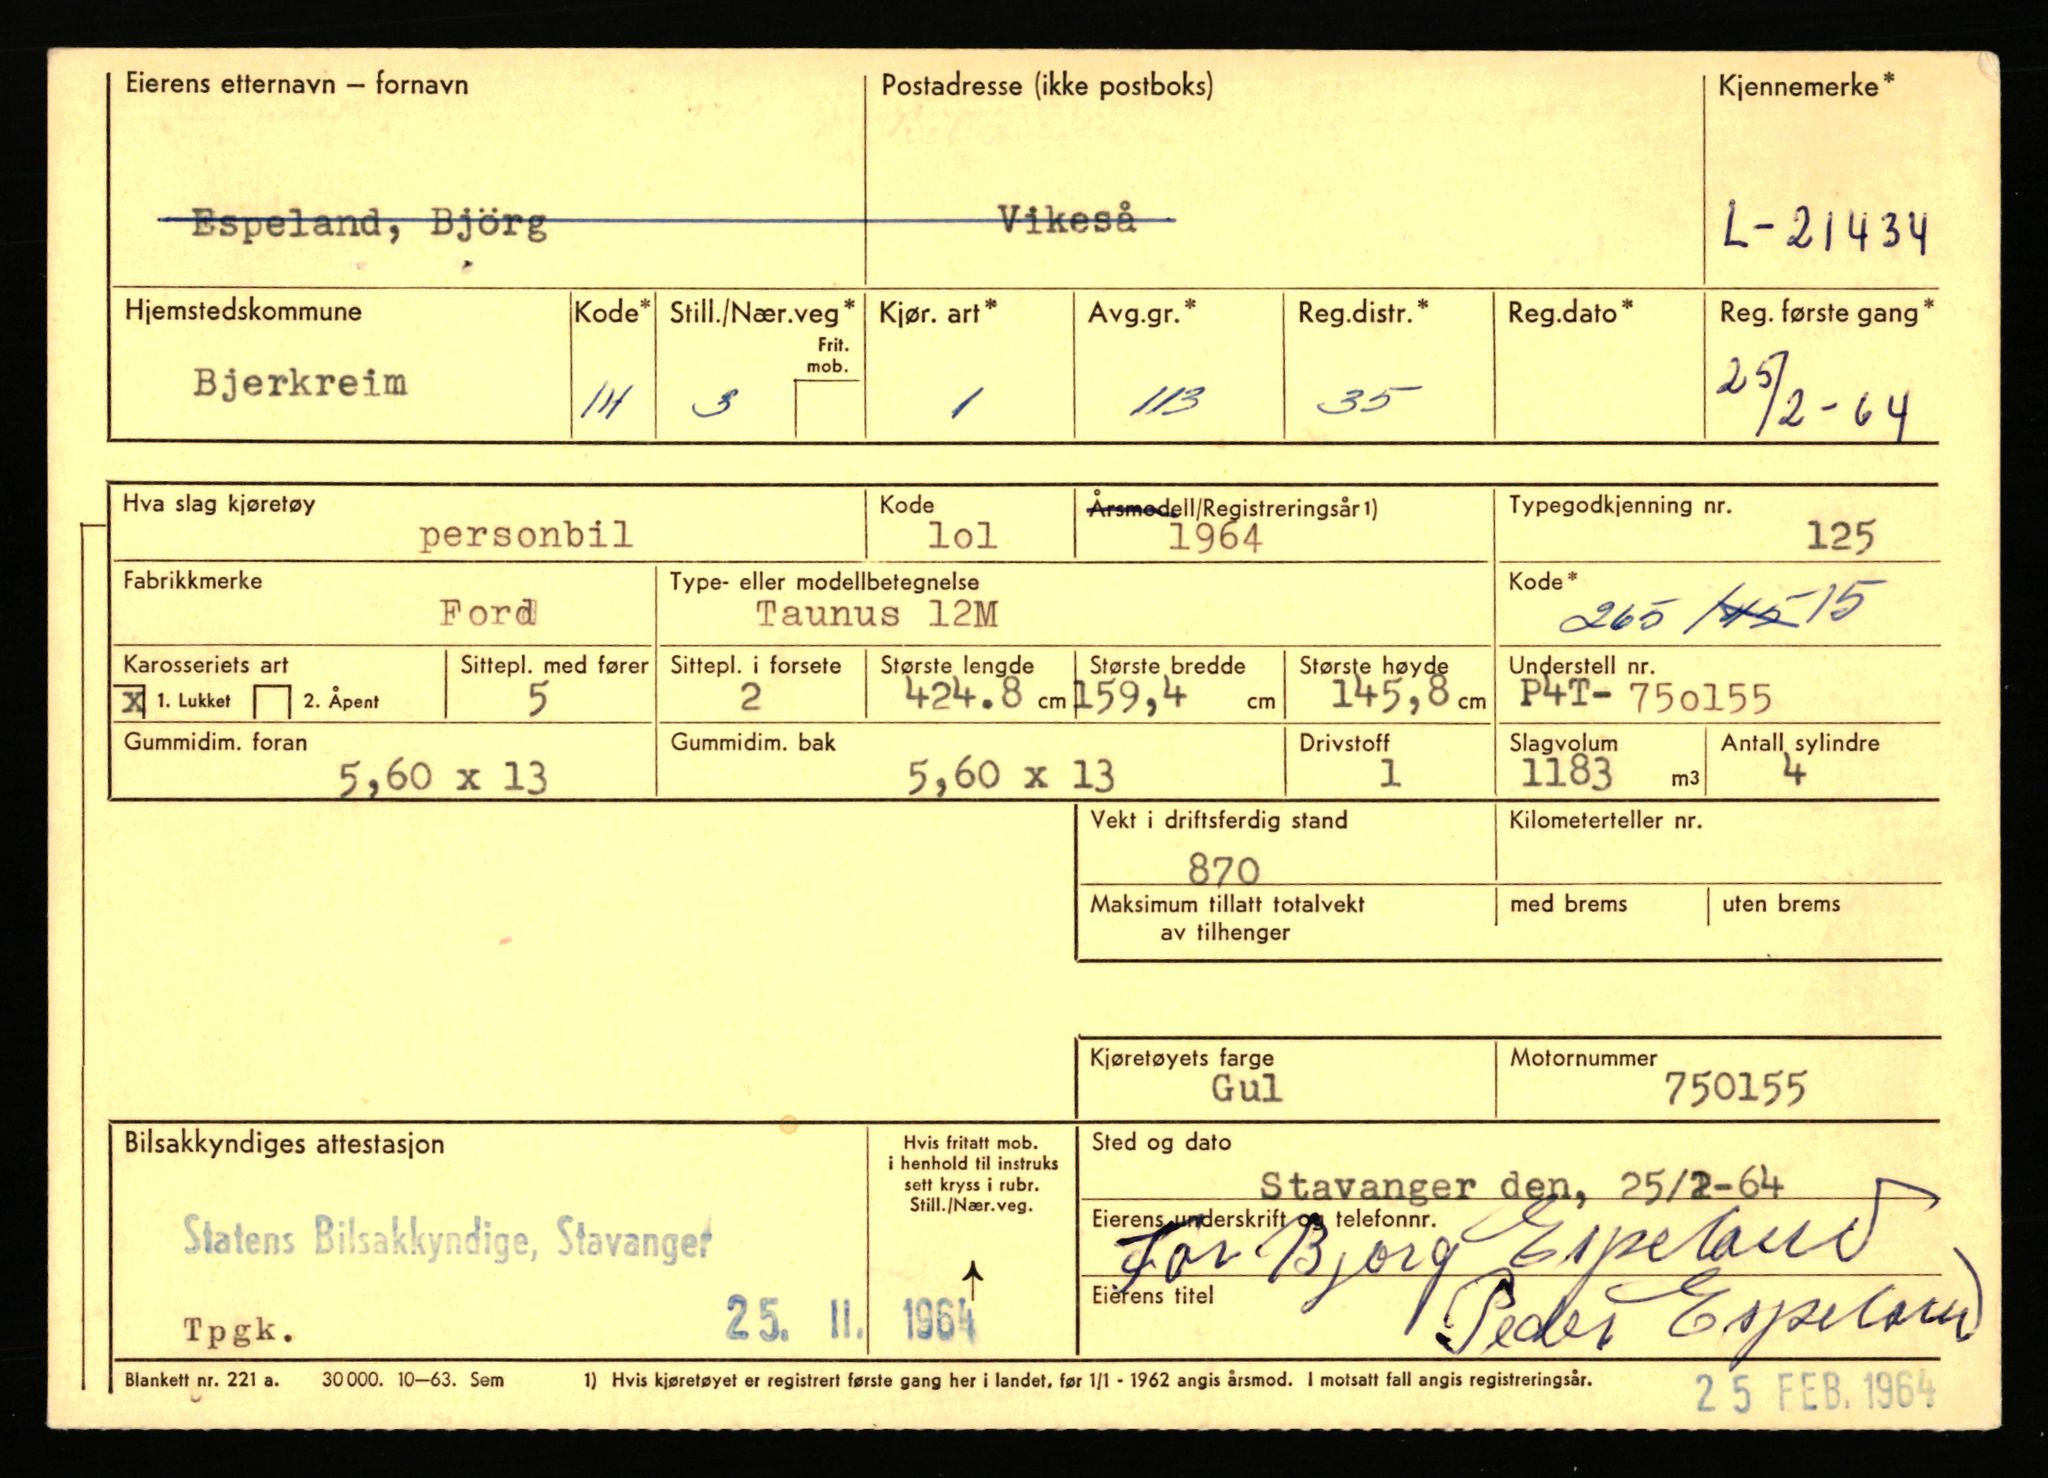 Eierens etternavn – fornavn Postadresse (ikke postboks) Kjennemerke*
Espeland, Björg Vikeså L-21434
Hjemstedskommune Kode* Still./Nær.veg* Kjør. art* Avg.gr.* Reg.distr.* Reg.dato* Reg. første gang*
Frit.
mob.
Bjerkreim 14 3 1 113 35 25/2-64
Hva slag kjøretøy Kode Årsmodell/Registreringsår1) Typegodkjenning nr.
personbil lol 1964 125
Fabrikkmerke Type- eller modellbetegnelse Kode*
Ford Taunus 12M 265 145 15
Karosseriets art Sittepl. med fører Sittepl. i forsete Største lengde Største bredde Største høyde Understell nr.
x 1. Lukket 2. Åpent 5 2 424.8 cm 159,4 cm 145,8 cm P4T- 750155
Gummidim. foran Gummidim. bak Drivstoff Slagvolum Antall sylindre
5,60 x 13 5,60 x 13 1 1183 m3 4
Vekt i driftsferdig stand Kilometerteller nr.
870
Maksimum tillatt totalvekt med brems uten brems
av tilhenger
Kjøretøyets farge Motornummer
Gul 750155
Bilsakkyndiges attestasjon Hvis fritatt mob. Sted og dato
i henhold til instruks
sett kryss i rubr.
Still./Nær.veg.
Stavanger den, 25/2-64
Eierens underskrift og telefonnr.
Statens Bilsakkyndige, Stavanger
For Bjørg Espeland
Eierens titel
Peder Espeland
Tpgk. 25. II. 1964
Blankett nr. 221 a. 30 000. 10–63. Sem 1) Hvis kjøretøyet er registrert første gang her i landet, før 1/1 - 1962 angis årsmod. I motsatt fall angis registreringsår.
25 FEB. 1964